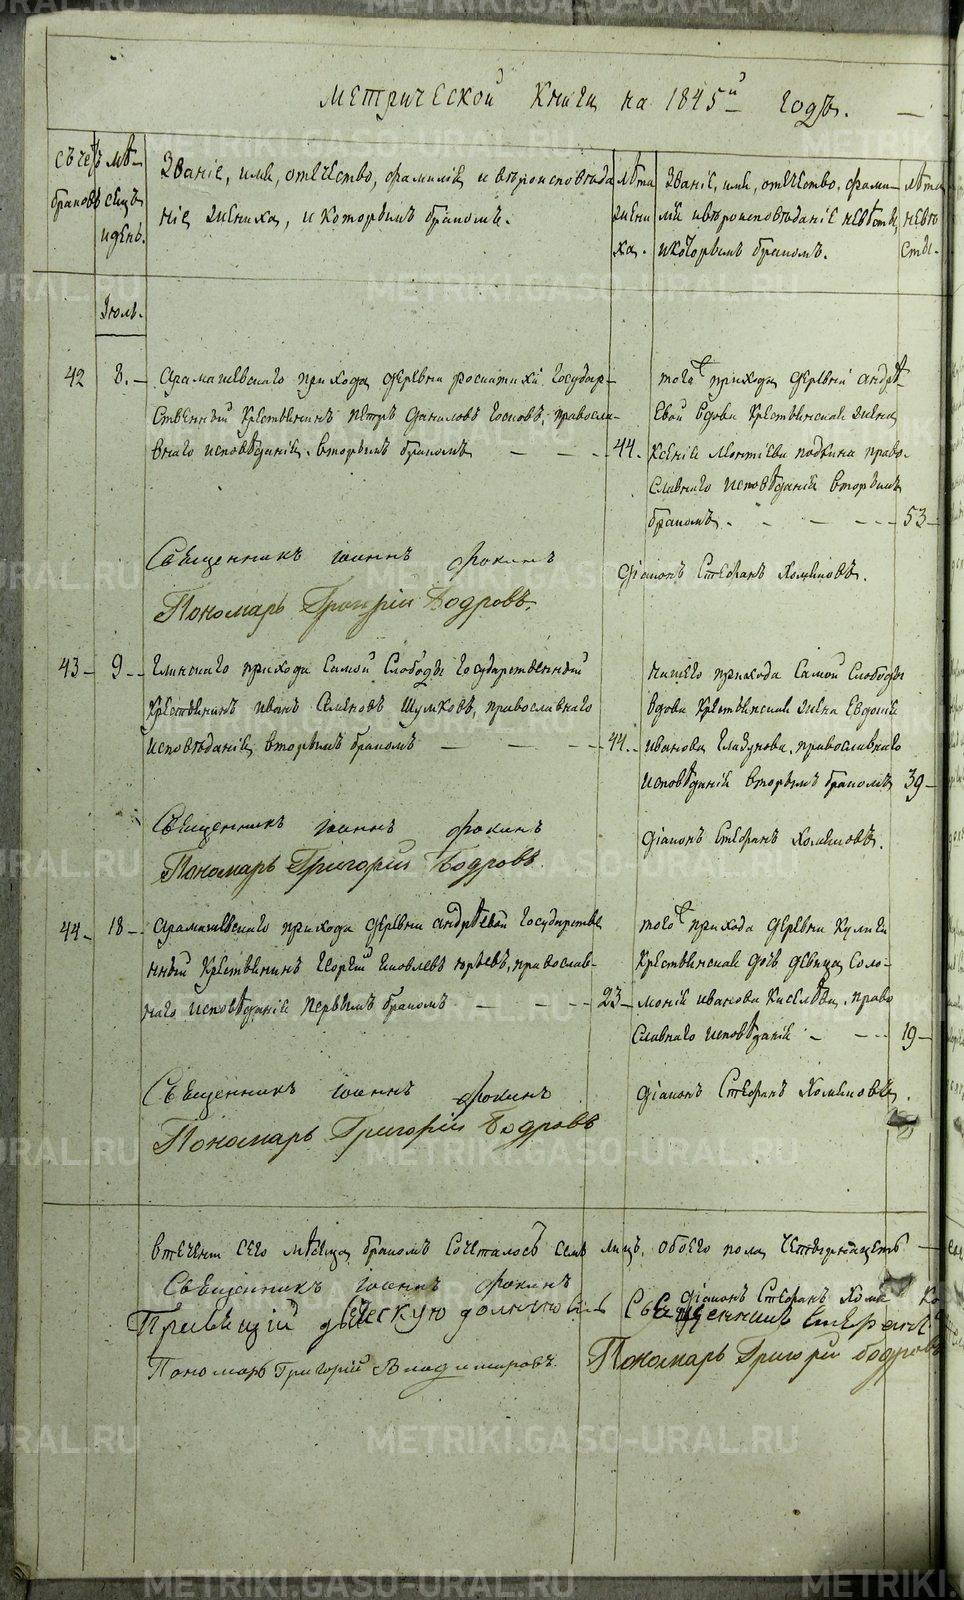 Метрической Книги на 1845й годъ.
Счетъ браковъ
Мѣсецъ и день.
Званіе, имя, отчество, фамилія и вѣроисповѣда
ніе жениха, и которымъ бракомъ.
Лѣта жени
ха.
Званіе, имя, отчество, фами-
лія и вѣроисповѣданіе невѣсты,
и которымъ бракомъ.
Лѣта
невѣ
сты.
Іюль.
42
8.
Арамашевскаго прихода деревни Государ-
ственный крестьянинъ Петръ Даниловъ православ-
внаго исповѣданія. вторымъ бракомъ
44.
того прихода деревни Андрѣ-
евой вдова крестьянская жена
Ксенія Леонтіева право-
славнаго исповѣданія вторымъ
бракомъ.
53
Священникъ Іоаннъ Фокинъ
Діаконъ Стефанъ Холмковъ.
Пономарь Григорій Бодровъ.
43
9
Глинскаго прихода самой Слободы государственный
крестьянинъ Иванъ Семеновъ Шумковъ, православнаго
исповѣданія, вторымъ бракомъ
44.
нашего прихода самой Слободы
вдова крестьянская жена Евдокія
Иванова Глазунова. православнаго
исповѣданія вторымъ бракомъ
39
Священникъ Іоаннъ Фокинъ
Діаконъ Стефанъ Холмковъ.
Пономарь Григорій Бодровъ
44
18
Арамашевскаго прихода деревни Андрѣевой государстве
нный крестьянинъ Георгій Яковлевъ Юрьевъ, православ-
наго исповѣданія первымъ бракомъ
23
того прихода деревни Кулиги
крестьянская дочь девица Соло-
монія Иванова Киселѣва. право
славнаго исповѣданія
19
Священникъ Іоаннъ Фокинъ
Діаконъ Стефанъ Холмковъ.
Пономарь Григорій Бодровъ
В теченіи сего мѣсяца бракомъ сочеталось семь лицъ, обоего пола четырнадцеть
Священникъ Іоаннъ Фокинъ
Діаконъ Стефанъ
Правящій должность Священникъ
Пономарь Григорій Владимировъ.
Пономарь Григорій Бодровъ
METRIKI.GASO-URAL.RU